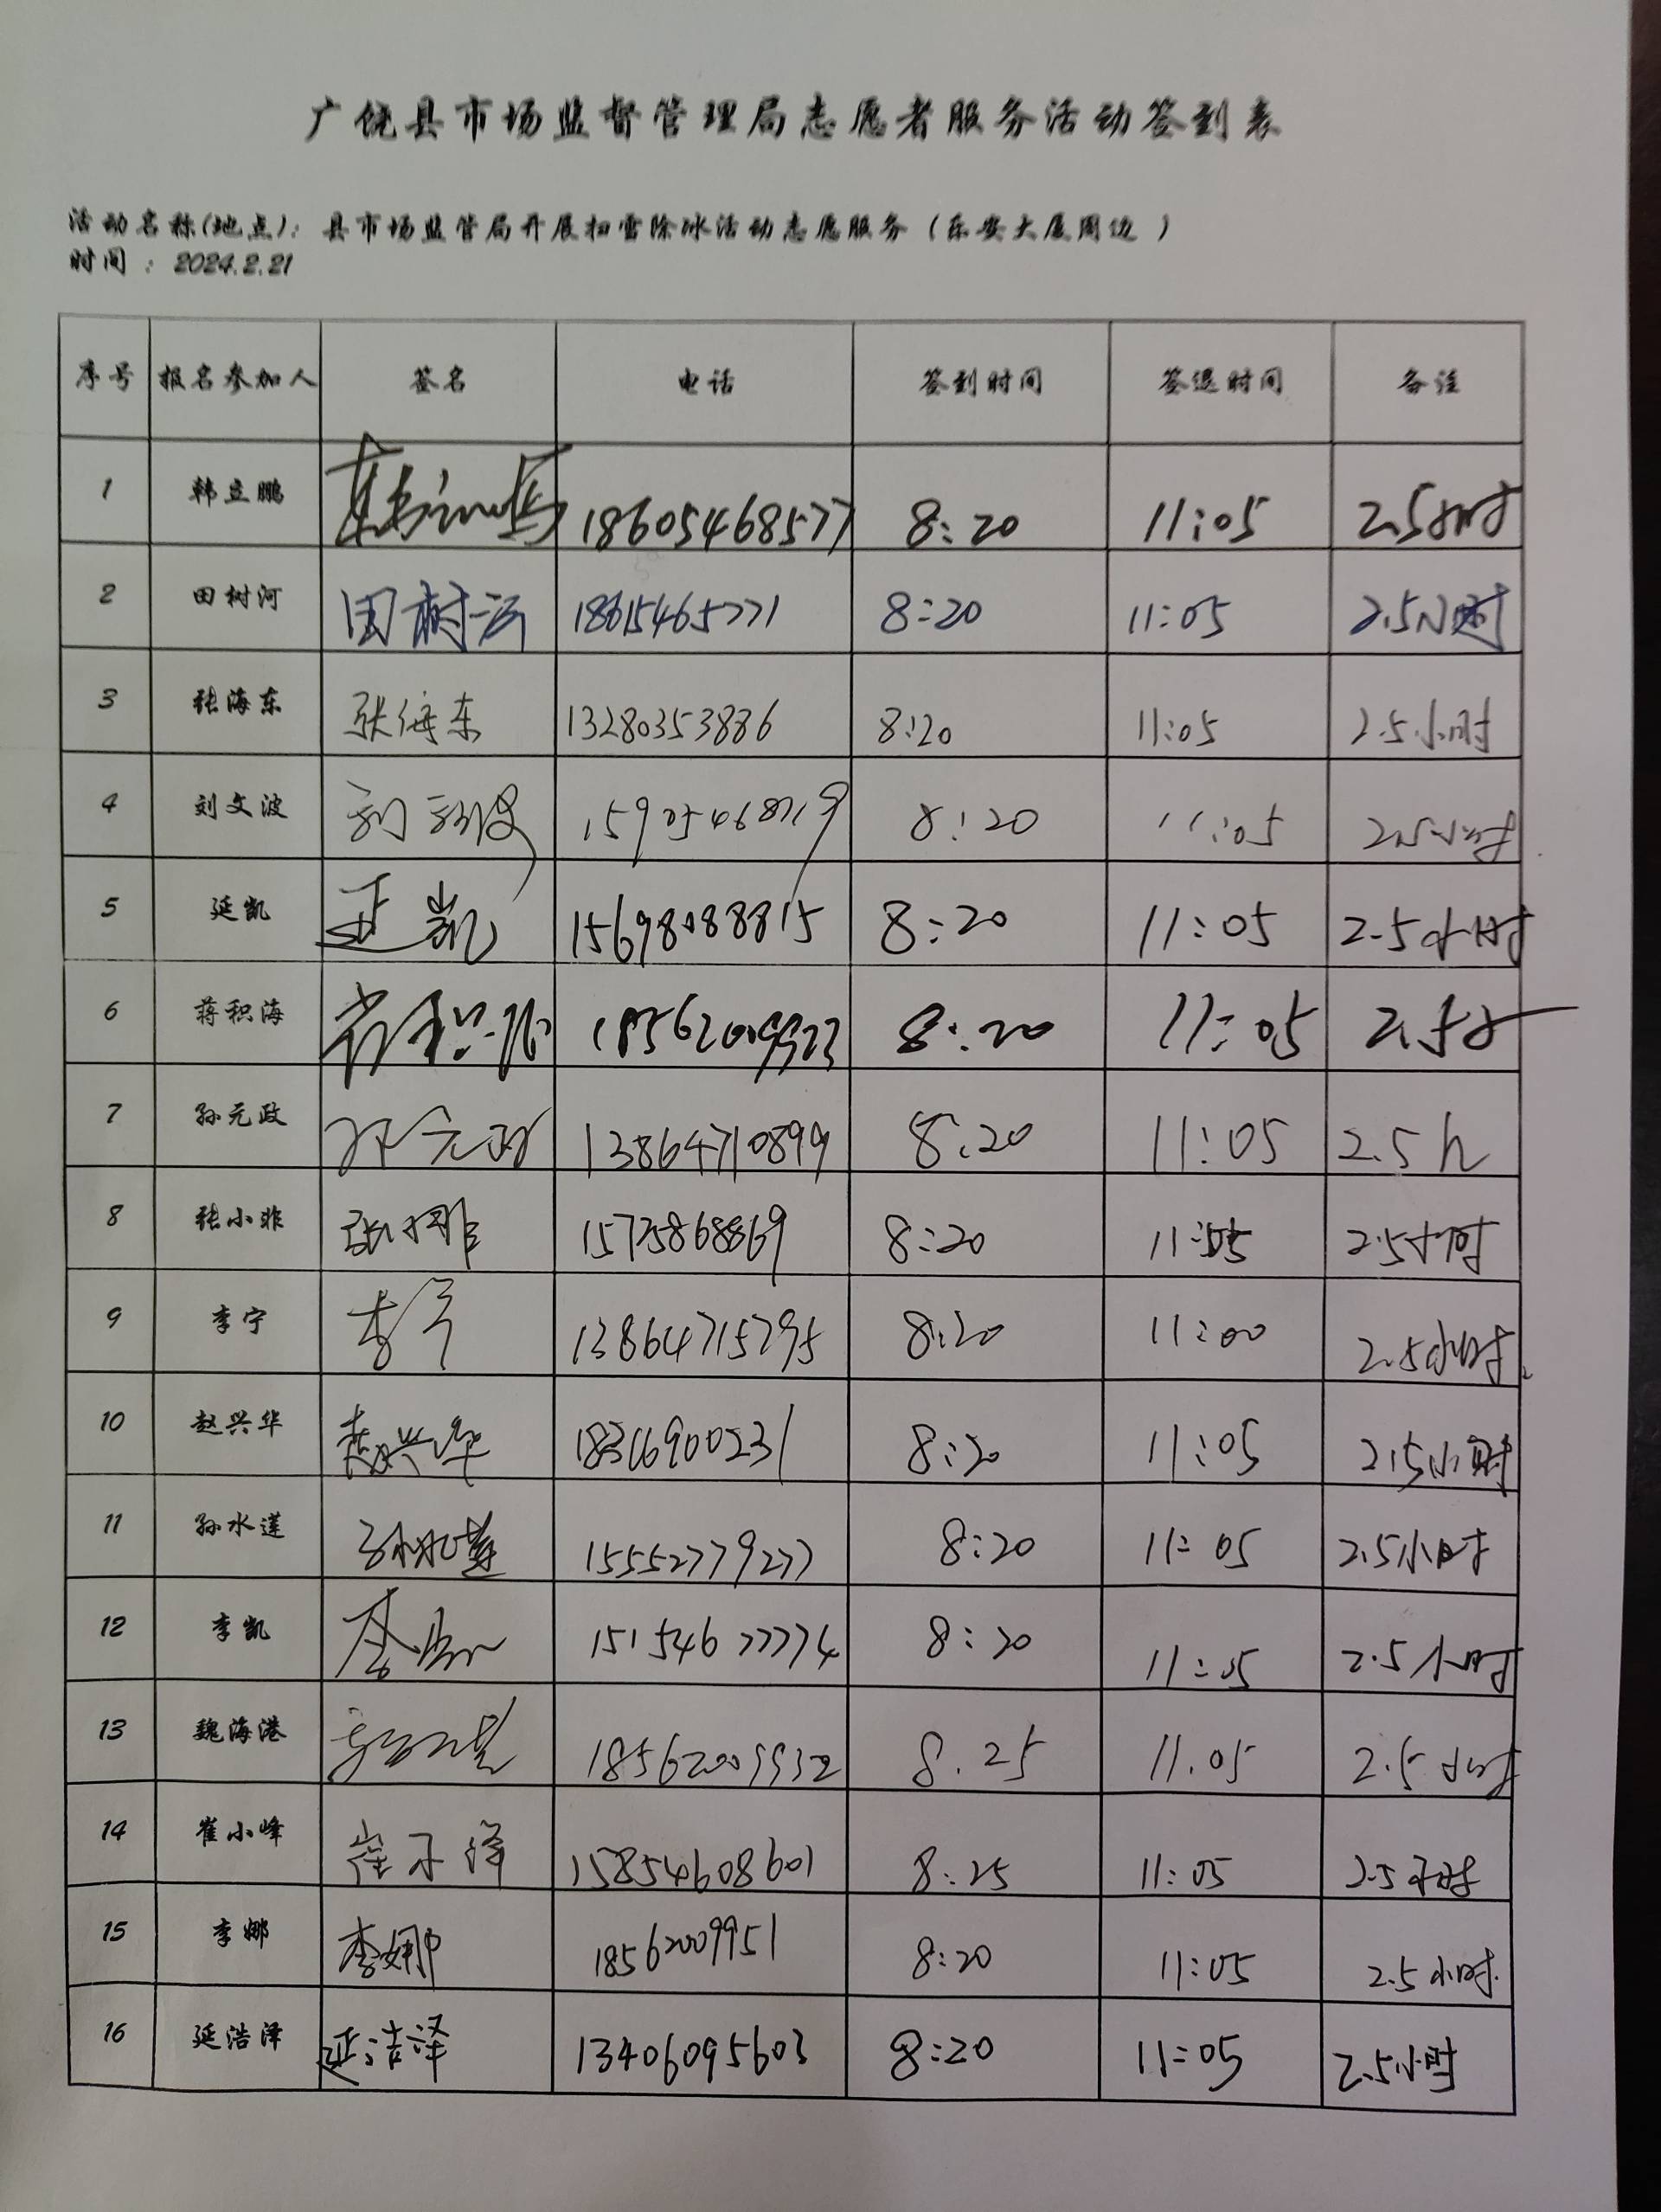 广饶县市场监督管理局志愿者服务活动签到表
活动名称(地点): 县市场监管局开展扫雪除冰活动志愿服务（乐安大厦周边 ）
时间 : 2024.2.21
序号 报名参加人 签名 电话 签到时间 签退时间 备注
1 韩立鹏 韩立鹏 18605468577 8:20 11:05 2.5小时
2 田树河 田树河 18615465771 8:20 11:05 2.5小时
3 张海东 张海东 13280353886 8:20 11:05 2.5小时
4 刘文波 刘文波 8:20 11:05 2.5小时
5 延凯 延凯 15698088815 8:20 11:05 2.5小时
6 蒋积海 蒋积海 18562009923 8:20 11:05 2.5
7 孙元政 孙元政 13864710899 8:20 11:05 2.5h
8 张小非 张小非 8:20 11:05 2.5小时
9 李宁 李宁 13864715795 8:20 11:00 2.5小时
10 赵兴华 赵兴华 8:20 11:05 2.5小时
11 孙水莲 孙水莲 15552779277 8:20 11:05 2.5小时
12 李凯 李凯 15154677774 8:20 11:05 2.5小时
13 魏海港 18562009932 8.25 11.05 2.5小时
14 崔小峰 15854608601 8:25 11:05 2.5小时
15 李娜 李娜 18562009951 8:20 11:05 2.5小时.
16 延浩泽 延浩泽 13406095603 8:20 11:05 2.5小时